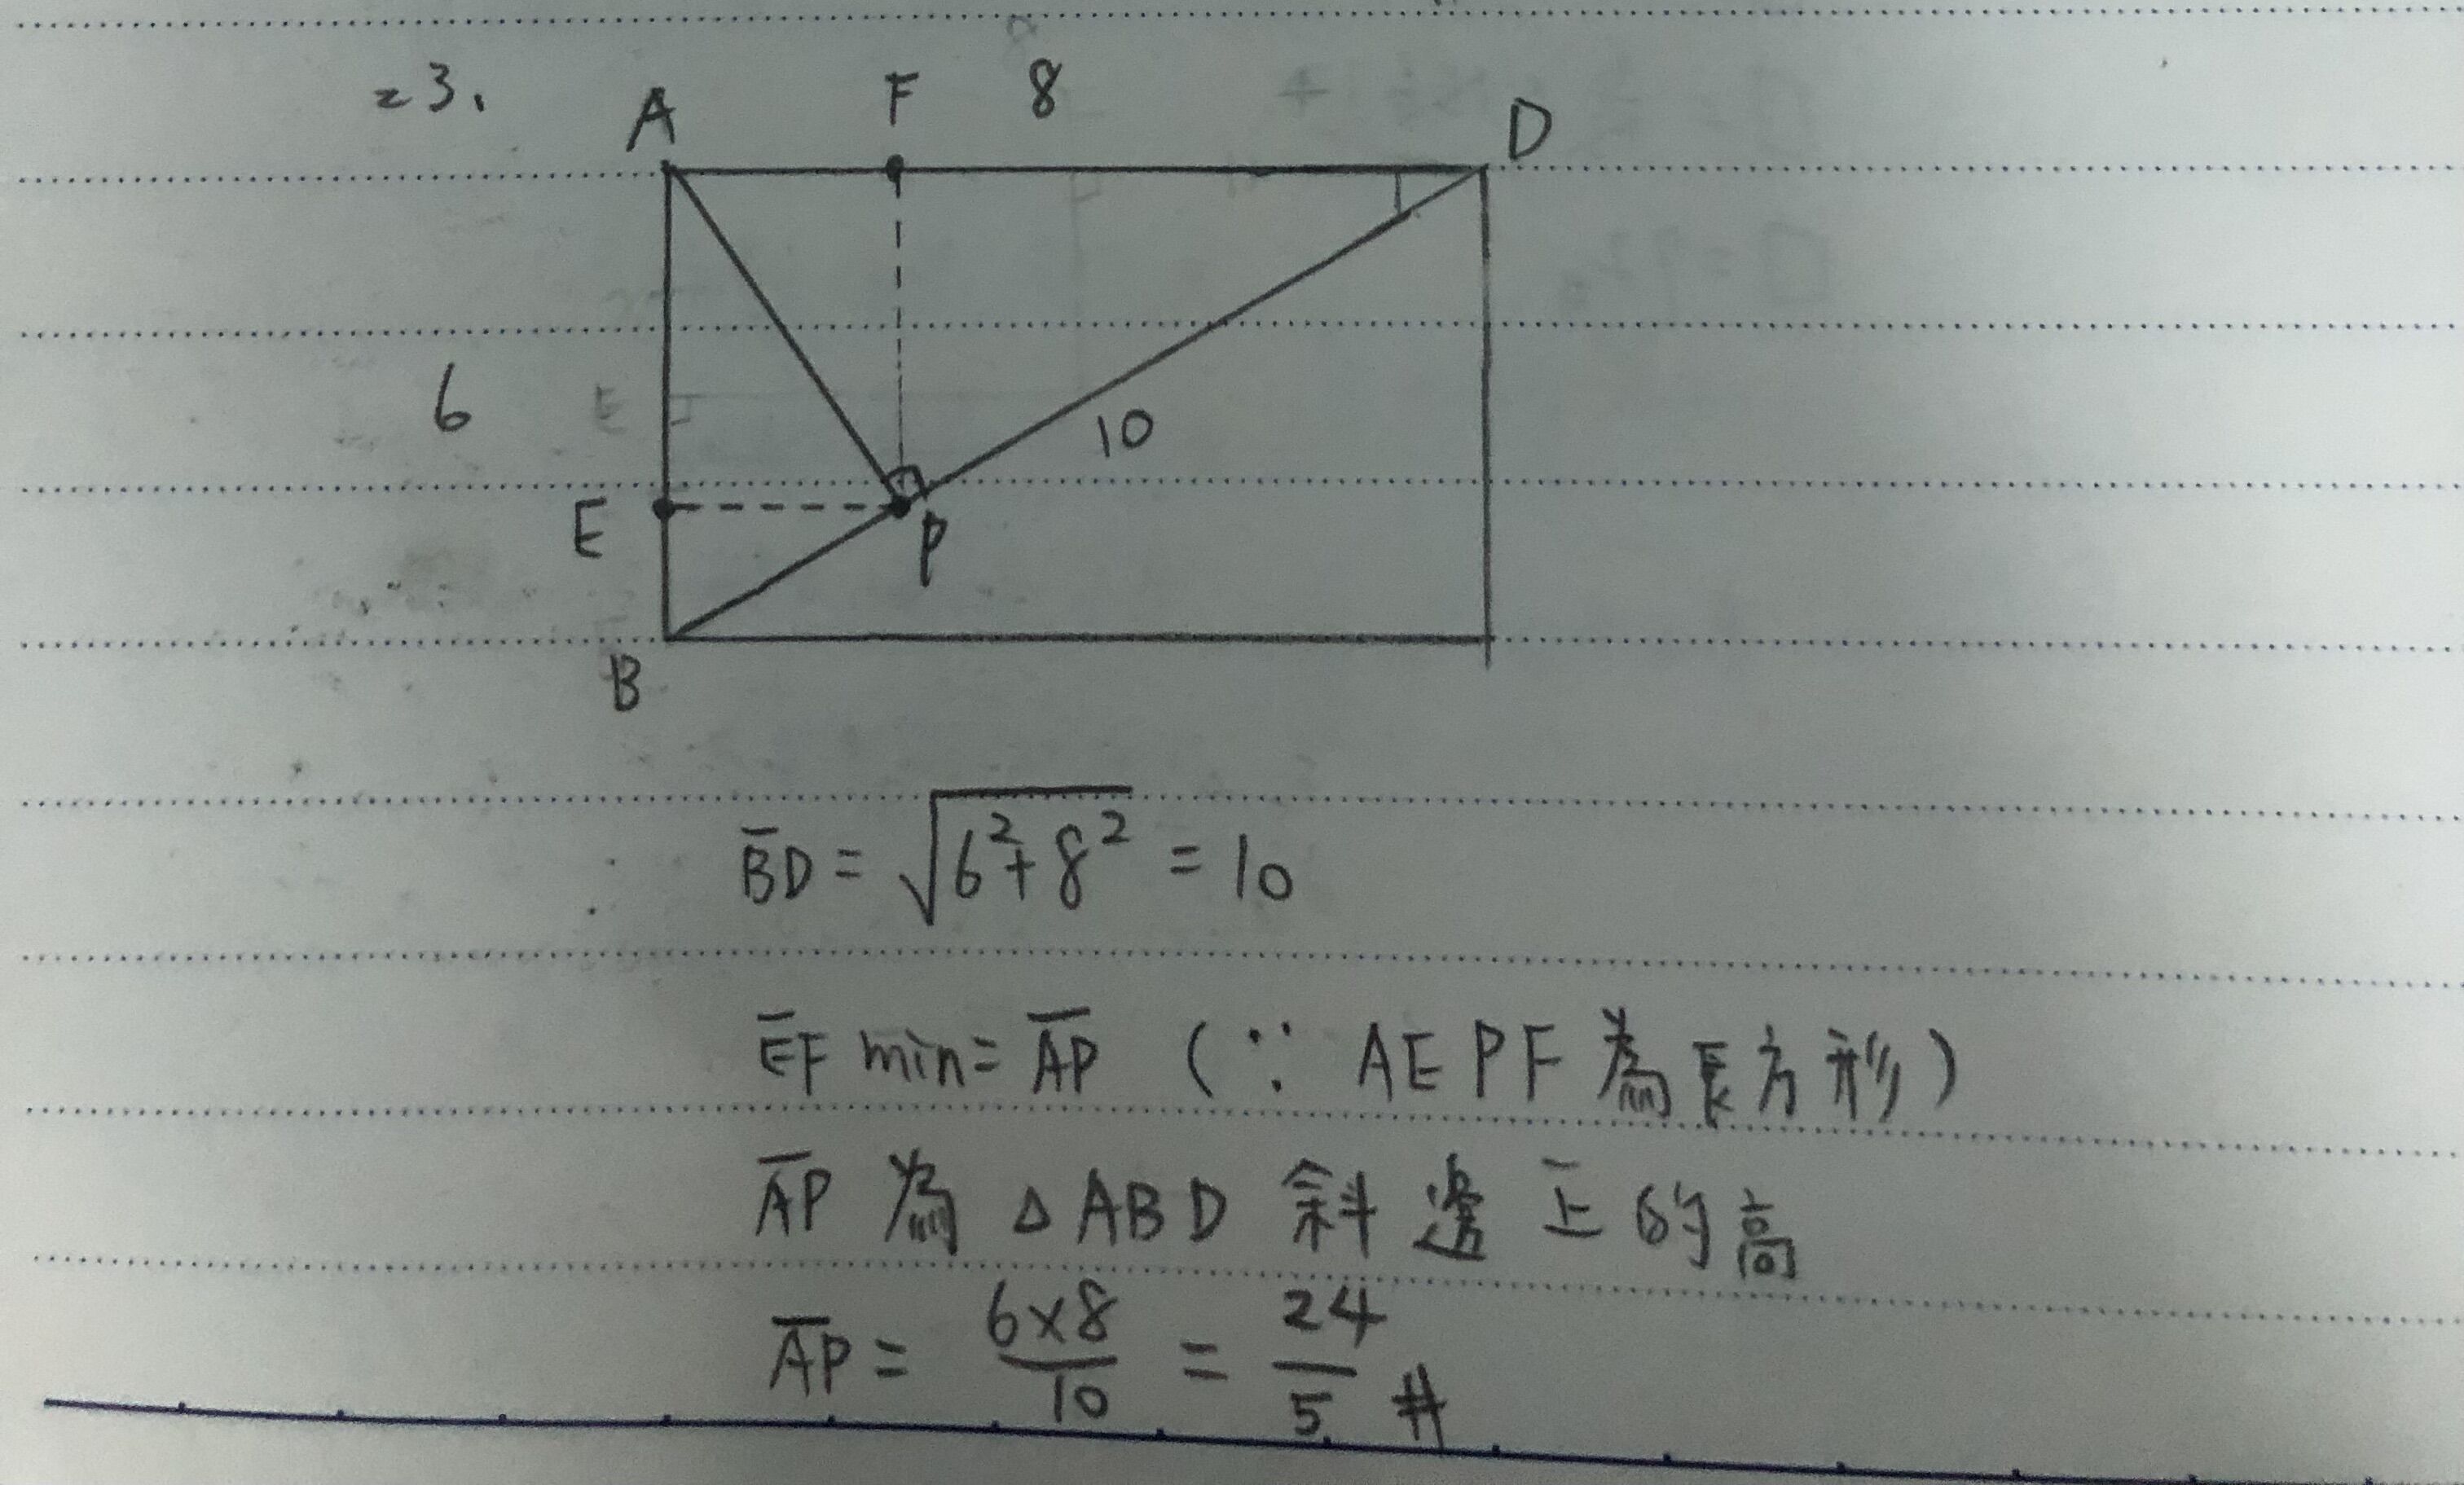 23.
A F 8 D
6
10
E P
B
B̅D̅ = √(6²+8²) = 10
E̅F̅ min = A̅P̅ (∵ AEPF 為長方形)
A̅P̅ 為 △ABD 斜邊上的高
A̅P̅ = 6×8/10 = 24/5 #